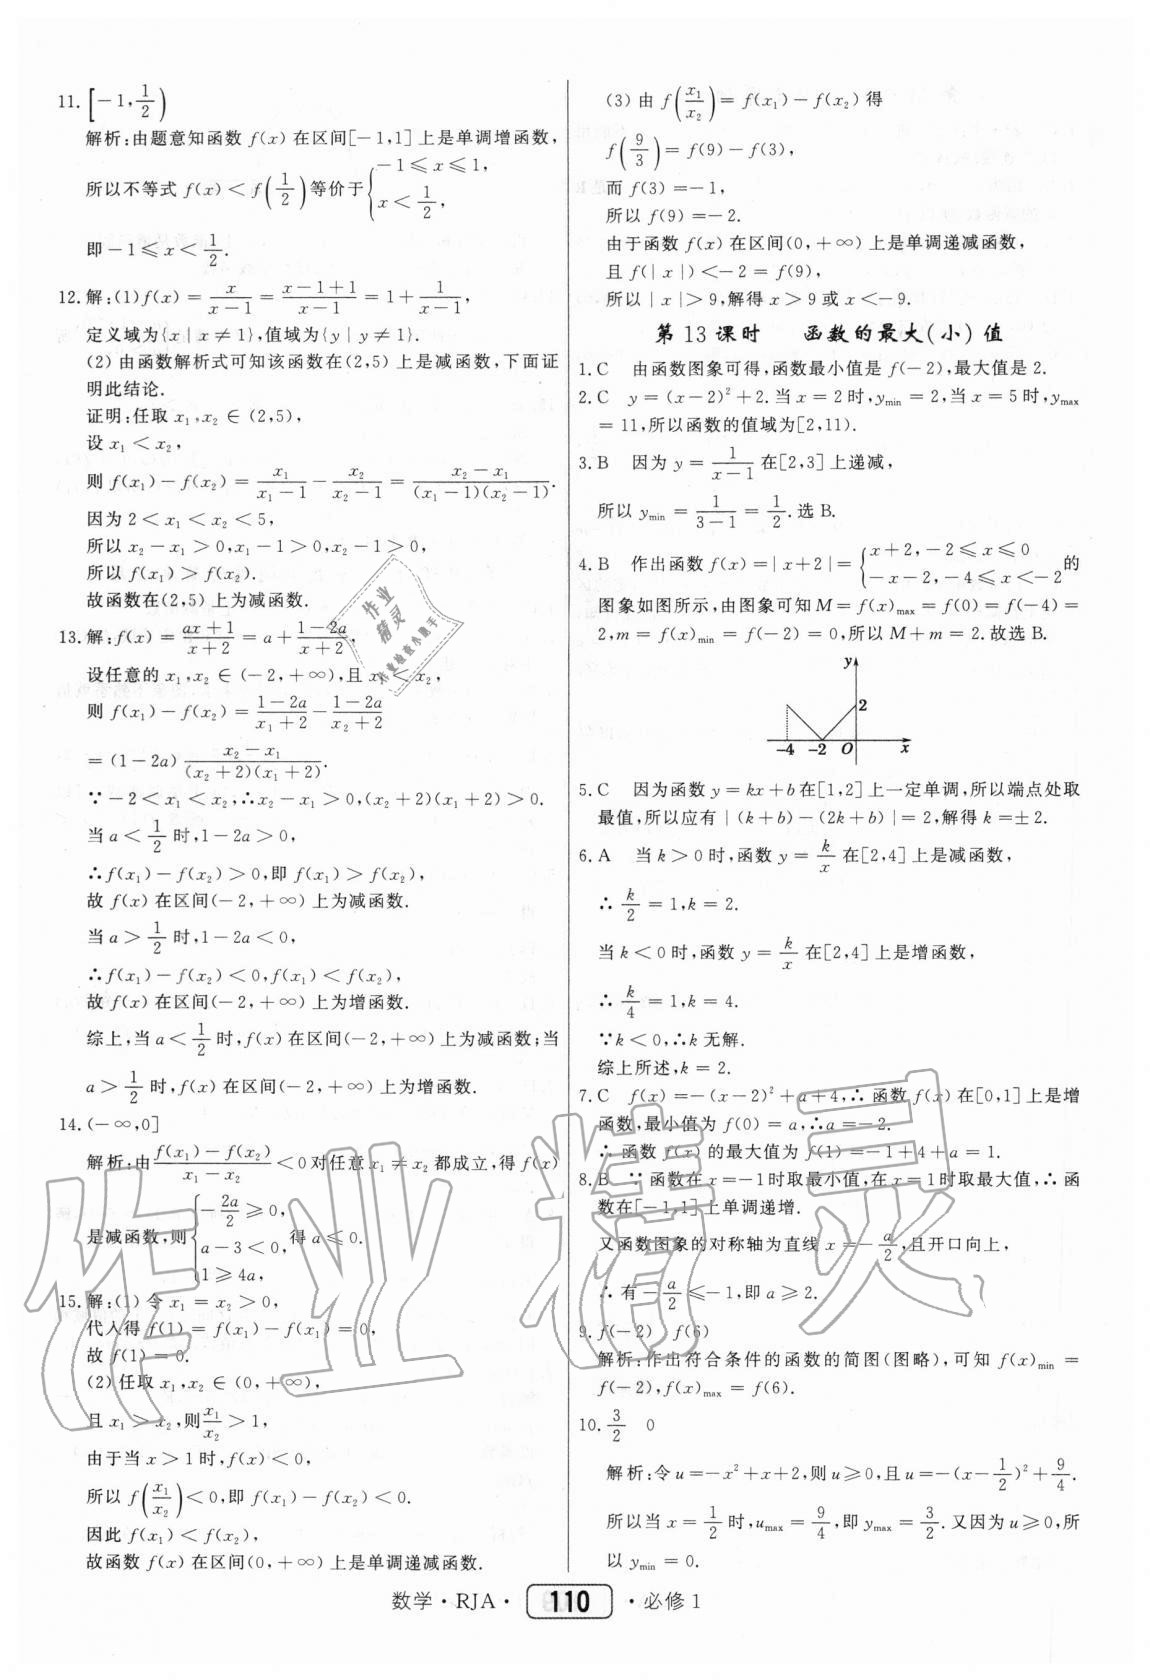 11. [-1, 1/2)
解析:由题意知函数 f(x)在区间[-1,1]上是单调增函数,
所以不等式 f(x)<f(1/2)等价于{-1≤x≤1, x<1/2,
即-1≤x<1/2.
12. 解:(1)f(x)=x/(x-1)=(x-1+1)/(x-1)=1+1/(x-1),
定义域为{x|x≠1},值域为{y|y≠1}.
(2)由函数解析式可知该函数在(2,5)上是减函数,下面证
明此结论.
证明:任取 x₁,x₂∈(2,5),
设 x₁<x₂,
则 f(x₁)-f(x₂)=x₁/(x₁-1)-x₂/(x₂-1)=(x₂-x₁)/((x₁-1)(x₂-1)).
因为 2<x₁<x₂<5,
所以 x₂-x₁>0,x₁-1>0,x₂-1>0,
所以 f(x₁)>f(x₂).
故函数在(2,5)上为减函数.
13. 解:f(x)=(ax+1)/(x+2)=a+(1-2a)/(x+2),
设任意的 x₁,x₂∈(-2,+∞),且 x₁<x₂,
则 f(x₁)-f(x₂)=(1-2a)/(x₁+2)-(1-2a)/(x₂+2)
=(1-2a)(x₂-x₁)/((x₂+2)(x₁+2)).
∵-2<x₁<x₂,∴x₂-x₁>0,(x₂+2)(x₁+2)>0.
当 a<1/2时,1-2a>0,
∴f(x₁)-f(x₂)>0,即 f(x₁)>f(x₂),
故 f(x)在区间(-2,+∞)上为减函数.
当 a>1/2时,1-2a<0,
∴f(x₁)-f(x₂)<0,f(x₁)<f(x₂),
故 f(x)在区间(-2,+∞)上为增函数.
综上,当 a<1/2时,f(x)在区间(-2,+∞)上为减函数;当
a>1/2时,f(x)在区间(-2,+∞)上为增函数.
14. (-∞,0]
解析:由(f(x₁)-f(x₂))/(x₁-x₂)<0对任意 x₁≠x₂都成立,得 f(x)
是减函数,则{-2a/2≥0, a-3<0, 1≥4a, 得 a≤0.
15. 解:(1)令 x₁=x₂>0,
代入得 f(1)=f(x₁)-f(x₁)=0,
故 f(1)=0.
(2)任取 x₁,x₂∈(0,+∞),
且 x₁>x₂,则x₁/x₂>1,
由于当 x>1时,f(x)<0,
所以 f(x₁/x₂)<0,即 f(x₁)-f(x₂)<0.
因此 f(x₁)<f(x₂),
故函数 f(x)在区间(0,+∞)上是单调递减函数.
(3)由 f(x₁/x₂)=f(x₁)-f(x₂)得
f(9/3)=f(9)-f(3),
而 f(3)=-1,
所以 f(9)=-2.
由于函数 f(x)在区间(0,+∞)上是单调递减函数,
且 f(|x|)<-2=f(9),
所以|x|>9,解得 x>9或 x<-9.
第 13 课时 函数的最大(小)值
1. C 由函数图象可得,函数最小值是 f(-2),最大值是 2.
2. C y=(x-2)²+2.当 x=2时,yₘᵢₙ=2,当 x=5时,yₘₐₓ
=11,所以函数的值域为[2,11).
3. B 因为 y=1/(x-1)在[2,3]上递减,
所以 yₘᵢₙ=1/(3-1)=1/2.选 B.
4. B 作出函数 f(x)=|x+2|={x+2,-2≤x≤0 -x-2,-4≤x<-2 的
图象如图所示,由图象可知 M=f(x)ₘₐₓ=f(0)=f(-4)=
2,m=f(x)ₘᵢₙ=f(-2)=0,所以 M+m=2.故选 B.
y
2
-4 -2 O x
5. C 因为函数 y=kx+b在[1,2]上一定单调,所以端点处取
最值,所以应有|(k+b)-(2k+b)|=2,解得 k=±2.
6. A 当 k>0时,函数 y=k/x在[2,4]上是减函数,
∴k/2=1,k=2.
当 k<0时,函数 y=k/x在[2,4]上是增函数,
∴k/4=1,k=4.
∵k<0,∴k 无解.
综上所述,k=2.
7. C f(x)=-(x-2)²+a+4,∴函数 f(x)在[0,1]上是增
函数,最小值为 f(0)=a,∴a=-2.
∴函数 f(x)的最大值为 f(1)=-1+4+a=1.
8. B ∵函数在 x=-1时取最小值,在 x=1时取最大值,∴函
数在[-1,1]上单调递增.
又函数图象的对称轴为直线 x=-a/2,且开口向上,
∴有-a/2≤-1,即 a≥2.
9. f(-2) f(6)
解析:作出符合条件的函数的简图(图略),可知 f(x)ₘᵢₙ=
f(-2),f(x)ₘₐₓ=f(6).
10. 3/2 0
解析:令 u=-x²+x+2,则 u≥0,且 u=-(x-1/2)²+9/4.
所以当 x=1/2时,uₘₐₓ=9/4,即 yₘₐₓ=3/2.又因为 u≥0,所
以 yₘᵢₙ=0.
数学·RJA· 110 ·必修 1
作业精灵
作业精灵
作业检查小助手